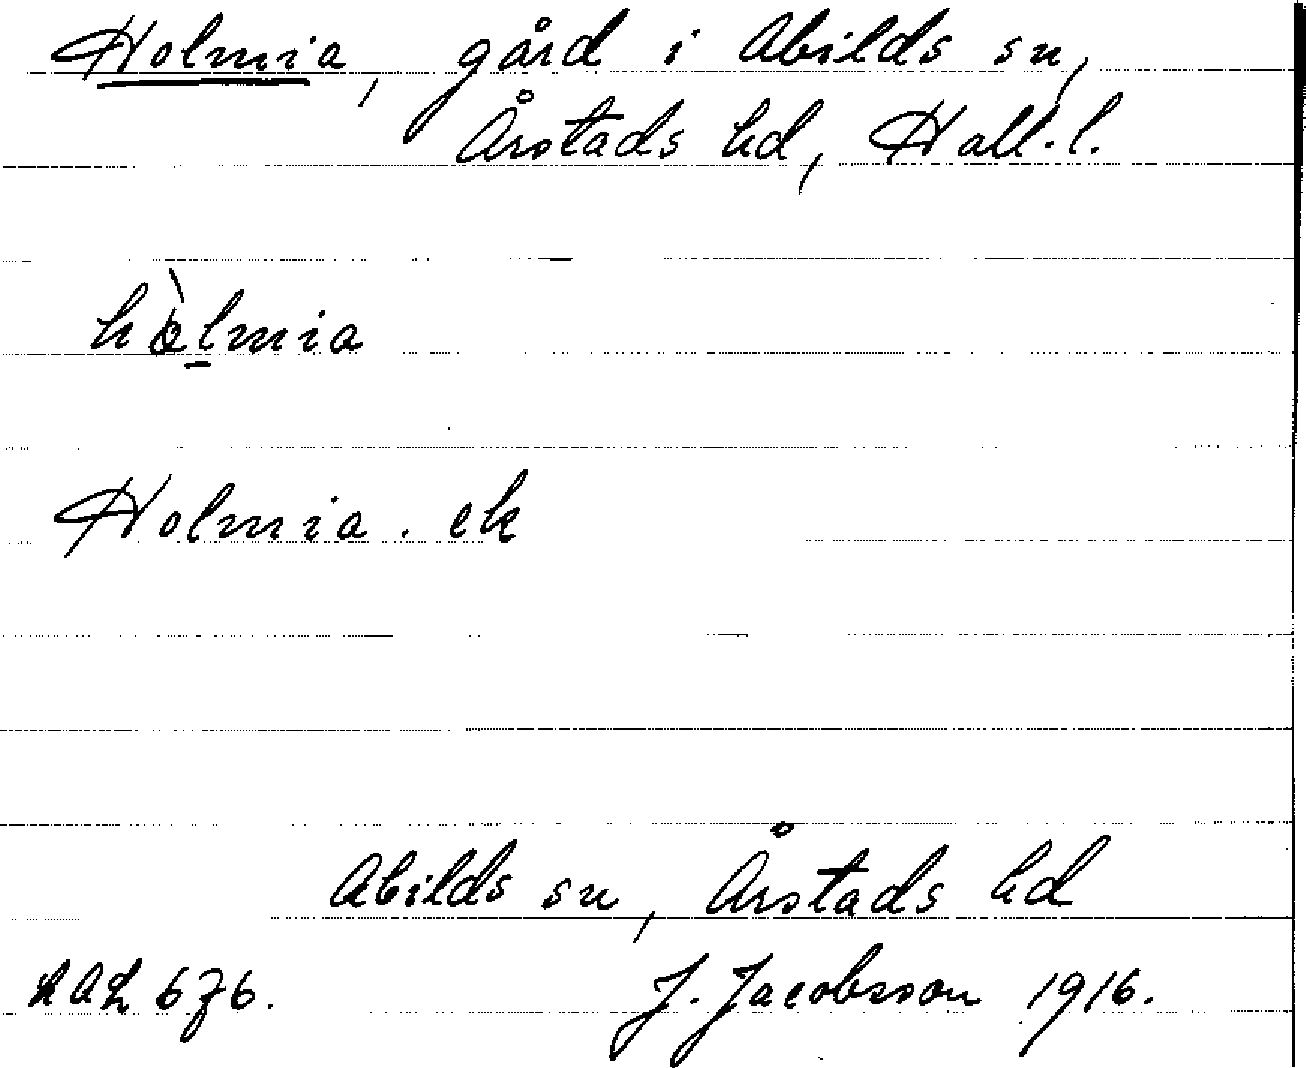 Holmia, gård i Abilds sn,
Årstads hd, Hall.l.
hòlmia
Holmia. ek
Abilds sn, Årstads hd
LAL 676. J. Jacobsson 1916.